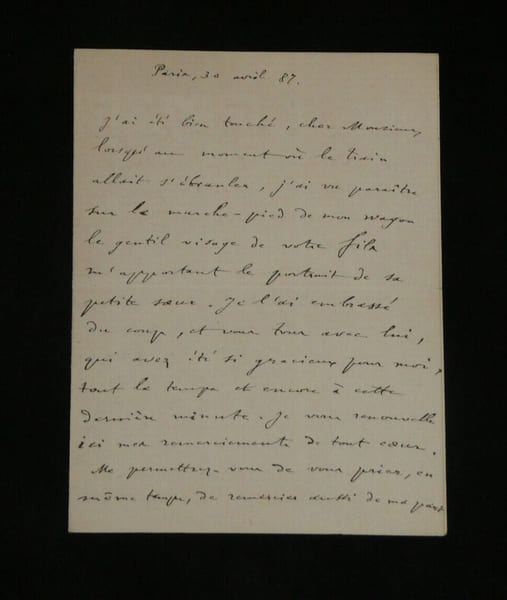 Paris, 30 avril 87.
J'ai été bien touché, cher Monsieur,
lorsqu'au moment où le train
allait s'ébranler, j'ai vu paraître
sur le marche-pied de mon wagon
le gentil visage de votre fils
m'apportant le portrait de sa
petite sœur. Je l'ai embrassé
du coup, et vous tous avec lui,
qui avez été si gracieux pour moi,
tout le temps et encore à cette
dernière minute. Je vous renouvelle
ici mes remerciements de tout cœur.
Me permettrez-vous de vous prier, en
même temps, de remercier aussi de ma part